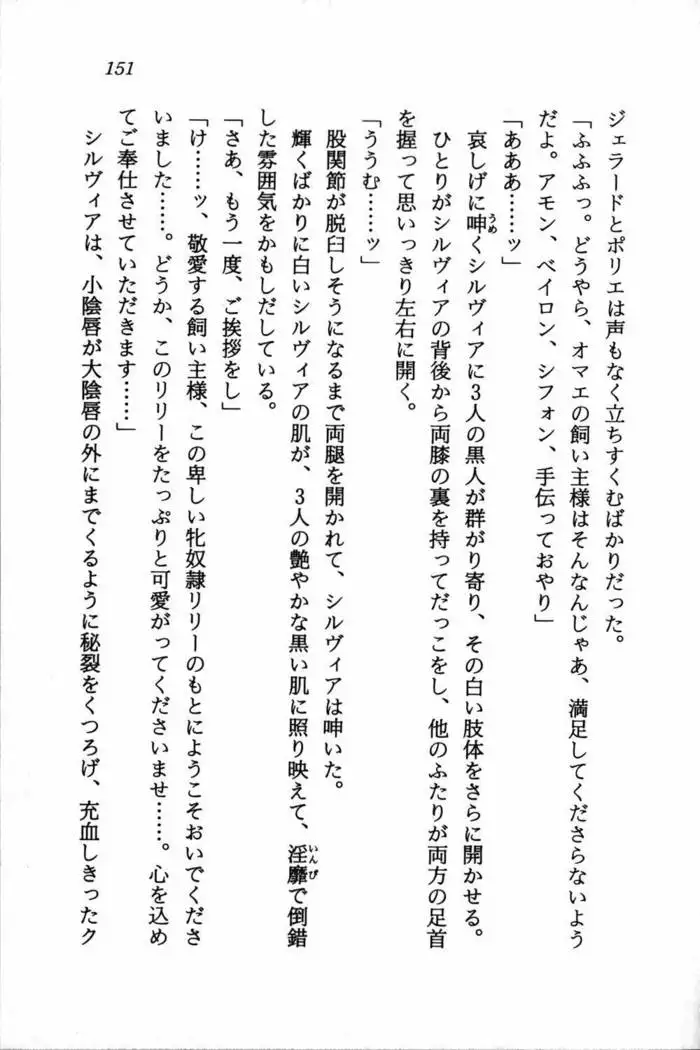 151
ジェラードとポリエは声もなく立ちすくむばかりだった。
「ふふふっ。どうやら、オマエの飼い主様はそんなんじゃあ、満足してくださらないよう
だよ。アモン、ベイロン、シフォン、手伝っておやり」
「あああ……ッ」
哀しげに呻くシルヴィアに3人の黒人が群がり寄り、その白い肢体をさらに開かせる。
ひとりがシルヴィアの背後から両膝の裏を持ってだっこをし、他のふたりが両方の足首
を握って思いっきり左右に開く。
「ううむ……ッ」
股関節が脱臼しそうになるまで両腿を開かれて、シルヴィアは呻いた。
輝くばかりに白いシルヴィアの肌が、3人の艶やかな黒い肌に照り映えて、淫靡で倒錯
した雰囲気をかもしだしている。
「さあ、もう一度、ご挨拶をし」
「け……ッ、敬愛する飼い主様、この卑しい牝奴隷リリーのもとにようこそおいでくださ
いました……。どうか、このリリーをたっぷりと可愛がってくださいませ……。心を込め
てご奉仕させていただきます……」
シルヴィアは、小陰唇が大陰唇の外にまでくるように秘裂をくつろげ、充血しきったク